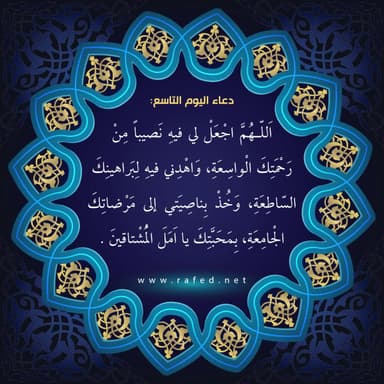 دعاء اليوم التاسع:
اَللّـهُمَّ اجْعَلْ لي فيهِ نَصيباً مِنْ
رَحْمَتِكَ الْواسِعَةِ، وَاهْدِني فيهِ لِبَراهينِكَ
السّاطِعَةِ، وَخُذْ بِناصِيَتي إلى مَرْضاتِكَ
الْجامِعَةِ، بِمَحَبَّتِكَ يا اَمَلَ الْمُشْتاقينَ .
www.rafed.net